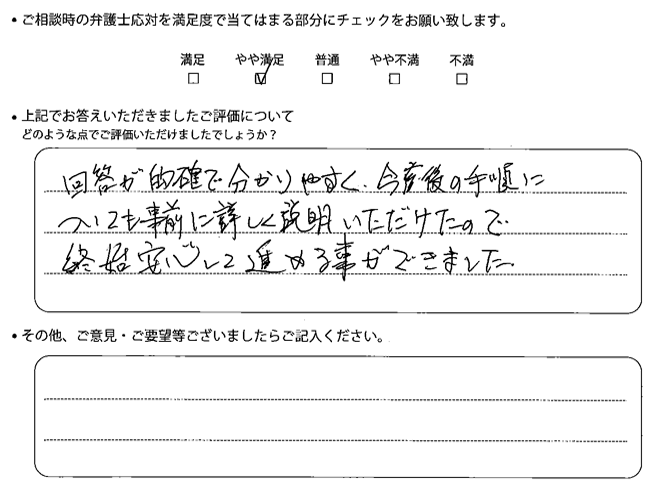 • ご相談時の弁護士応対を満足度で当てはまる部分にチェックをお願い致します。
満足 やや満足 普通 やや不満 不満
□ ☑ □ □ □
• 上記でお答えいただきましたご評価について
どのような点でご評価いただけましたでしょうか？
回答が的確で分かりやすく、今後の手順に
ついても事前に詳しく説明いただけたので
終始安心して進める事ができました。
• その他、ご意見・ご要望等ございましたらご記入ください。